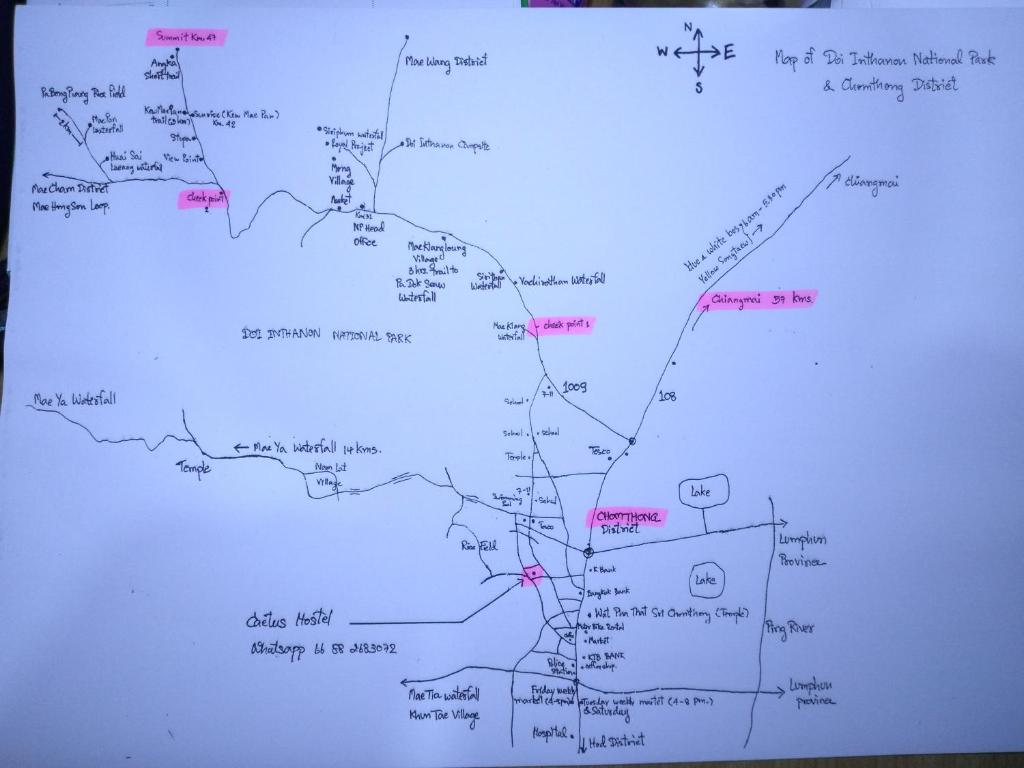 N
W E
S
Map of Doi Inthanon National Park
& Chomthong District
Summit Km. 47
Angka
Short trail
Mae Wang District
Mae Pan
waterfall
Kew Mae Pan
Sunrise (Kew Mae Pan)
Km. 42
Stupa
View Point
Huai Sai
waterfall
Mae Cham District
Mae Hong Son Loop.
check point
2
Siriphum waterfall
Royal Project
Doi Inthanon Campsite
Mong
Village
Market
Km 31
NP Head
Office
Mae Klang Loung
Village
3 hrs. Trail to
Pa Dok Seaw
Waterfall
Sirithan
Waterfall
Vachirathan Waterfall
Mae Klang
waterfall
check point 1
DOI INTHANON NATIONAL PARK
Chiangmai
Blue & white bus, 6 am - 5.30 pm
Yellow Songtaew
Chiangmai 57 kms.
1009
7-11
108
School
School
School
Temple
Tesco
Mae Ya Waterfall
← Mae Ya Waterfall 14 kms.
Temple
Village
7-11
Swimming
Pool
School
Tesco
Rice Field
CHOMTHONG
District
Lake
Lumphun
Province
K Bank
Bangkok Bank
Lake
Cactus Hostel
Wat Pra That Sri Chomthong (Temple)
Ping River
Motor Bike Rental
Market
KTB BANK
Police
Station
Mae Tia waterfall
Khun Tae Village
Friday weekly
market
Tuesday weekly market (4-8 pm.)
& Saturday
Lumphun
province
Hospital
Hod District